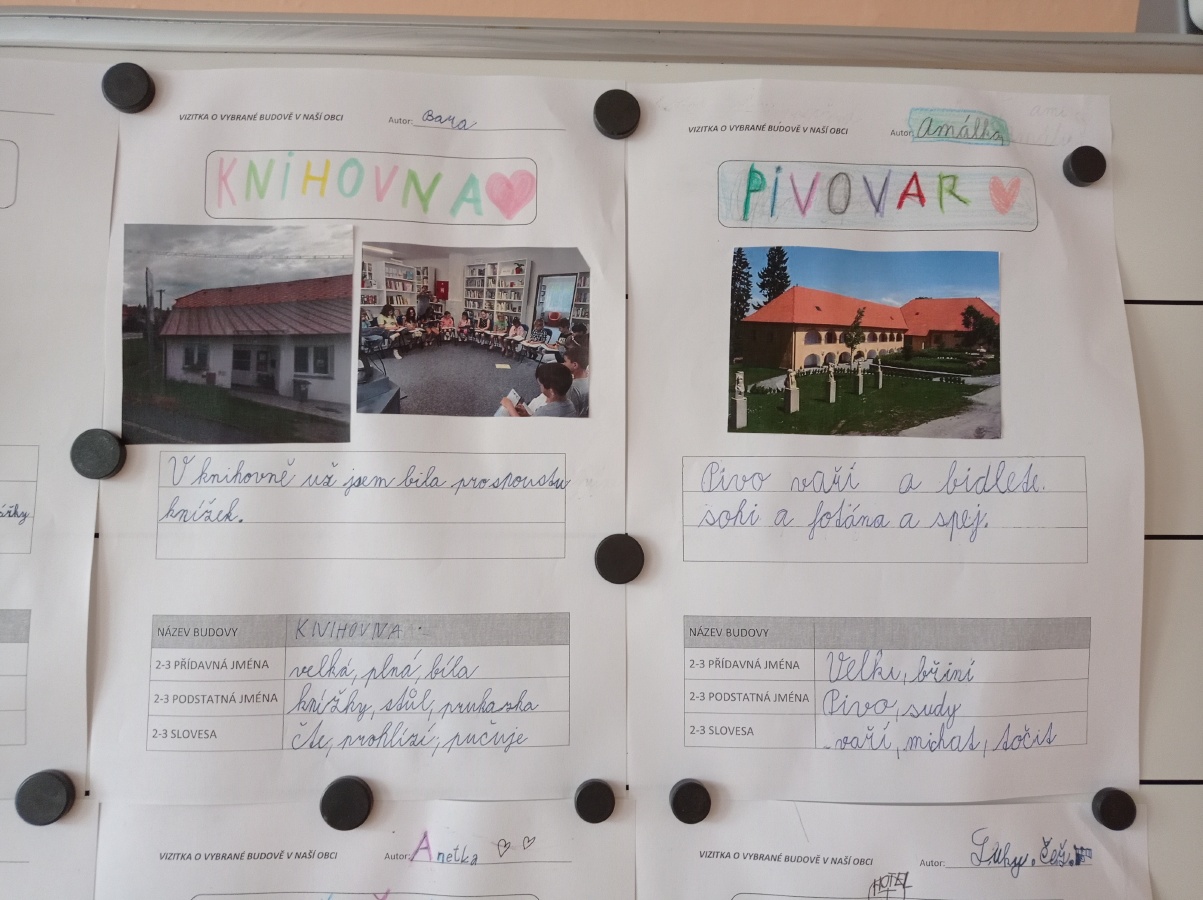 VIZITKA O VYBRANÉ BUDOVĚ V NAŠÍ OBCI Autor: Bara
KNIHOVNA
V knihovně už jsem bila prospoustu
knížek.
NÁZEV BUDOVY KNIHOVNA
2-3 PŘÍDAVNÁ JMÉNA velká, plná, bíla
2-3 PODSTATNÁ JMÉNA knížky, stůl, prukazka
2-3 SLOVESA čte, prohlízí, pučuje
VIZITKA O VYBRANÉ BUDOVĚ V NAŠÍ OBCI Autor: Amálka
PIVOVAR
Pivo vaří a bidlete.
sohi a fotána a spej.
NÁZEV BUDOVY
2-3 PŘÍDAVNÁ JMÉNA Velki, bříní
2-3 PODSTATNÁ JMÉNA Pivo, sudy
2-3 SLOVESA vaří, míchat, točit
VIZITKA O VYBRANÉ BUDOVĚ V NAŠÍ OBCI Autor: Anetka
VIZITKA O VYBRANÉ BUDOVĚ V NAŠÍ OBCI Autor:
HOTEL